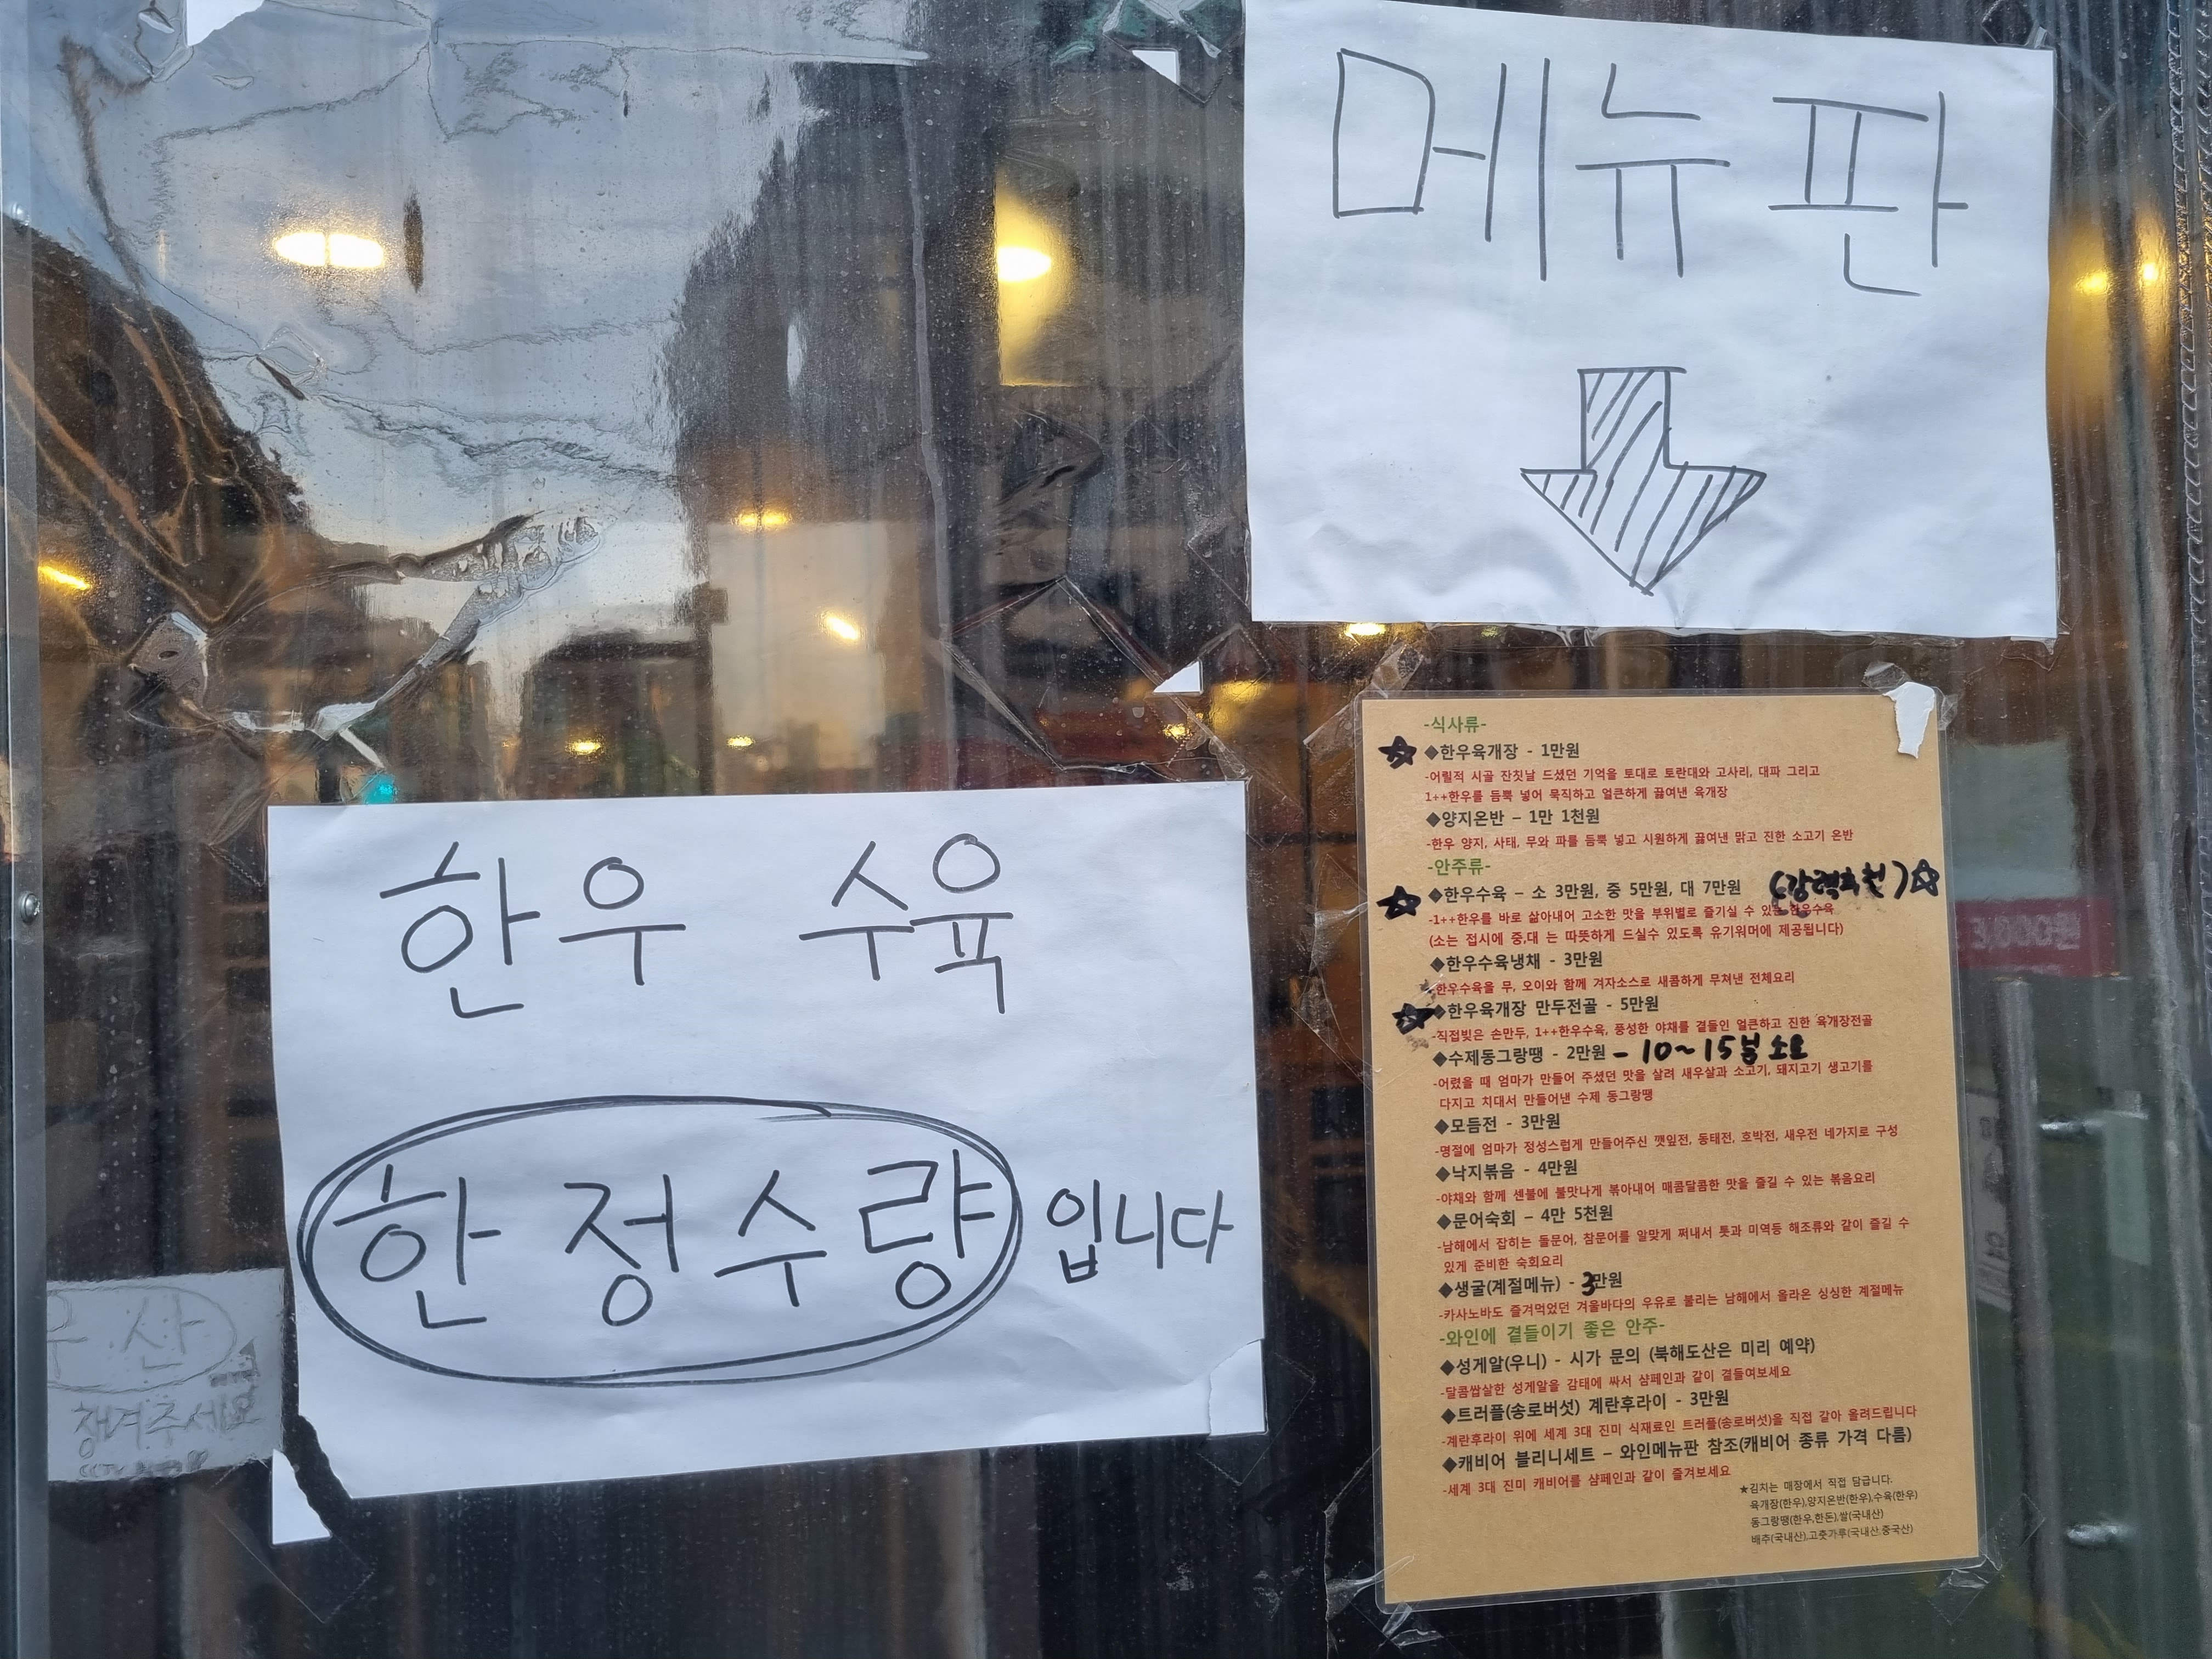 메뉴판
한우 수육
한정수량 입니다
우산
챙겨주세요
-식사류-
◆한우육개장 - 1만원
-어릴적 시골 잔칫날 드셨던 기억을 토대로 토란대와 고사리, 대파 그리고
1++한우를 듬뿍 넣어 묵직하고 얼큰하게 끓여낸 육개장
◆양지온반 – 1만 1천원
-한우 양지, 사태, 무와 파를 듬뿍 넣고 시원하게 끓여낸 맑고 진한 소고기 온반
-안주류-
◆한우수육 – 소 3만원, 중 5만원, 대 7만원 (강력추천)☆
-1++한우를 바로 삶아내어 고소한 맛을 부위별로 즐기실 수 있는 한우수육
(소는 접시에 중,대 는 따뜻하게 드실수 있도록 유기워머에 제공됩니다)
◆한우수육냉채 - 3만원
-한우수육을 무, 오이와 함께 겨자소스로 새콤하게 무쳐낸 전체요리
◆한우육개장 만두전골 - 5만원
-직접빚은 손만두, 1++한우수육, 풍성한 야채를 곁들인 얼큰하고 진한 육개장전골
◆수제동그랑땡 - 2만원 - 10~15분 소요
-어렸을 때 엄마가 만들어 주셨던 맛을 살려 새우살과 소고기, 돼지고기 생고기를
다지고 치대서 만들어낸 수제 동그랑땡
◆모듬전 - 3만원
-명절에 엄마가 정성스럽게 만들어주신 깻잎전, 동태전, 호박전, 새우전 네가지로 구성
◆낙지볶음 - 4만원
-야채와 함께 센불에 불맛나게 볶아내어 매콤달콤한 맛을 즐길 수 있는 볶음요리
◆문어숙회 – 4만 5천원
-남해에서 잡히는 돌문어, 참문어를 알맞게 쪄내서 톳과 미역등 해조류와 같이 즐길 수
있게 준비한 숙회요리
◆생굴(계절메뉴) - 3만원
-카사노바도 즐겨먹었던 겨울바다의 우유로 불리는 남해에서 올라온 싱싱한 계절메뉴
-와인에 곁들이기 좋은 안주-
◆성게알(우니) - 시가 문의 (북해도산은 미리 예약)
-달콤쌉살한 성게알을 감태에 싸서 샴페인과 같이 곁들여보세요
◆트러플(송로버섯) 계란후라이 - 3만원
-계란후라이 위에 세계 3대 진미 식재료인 트러플(송로버섯)을 직접 갈아 올려드립니다
◆캐비어 블리니세트 – 와인메뉴판 참조(캐비어 종류 가격 다름)
-세계 3대 진미 캐비어를 샴페인과 같이 즐겨보세요
★김치는 매장에서 직접 담급니다.
육개장(한우),양지온반(한우),수육(한우)
동그랑땡(한우,한돈),쌀(국내산)
배추(국내산),고춧가루(국내산,중국산)
3,000원